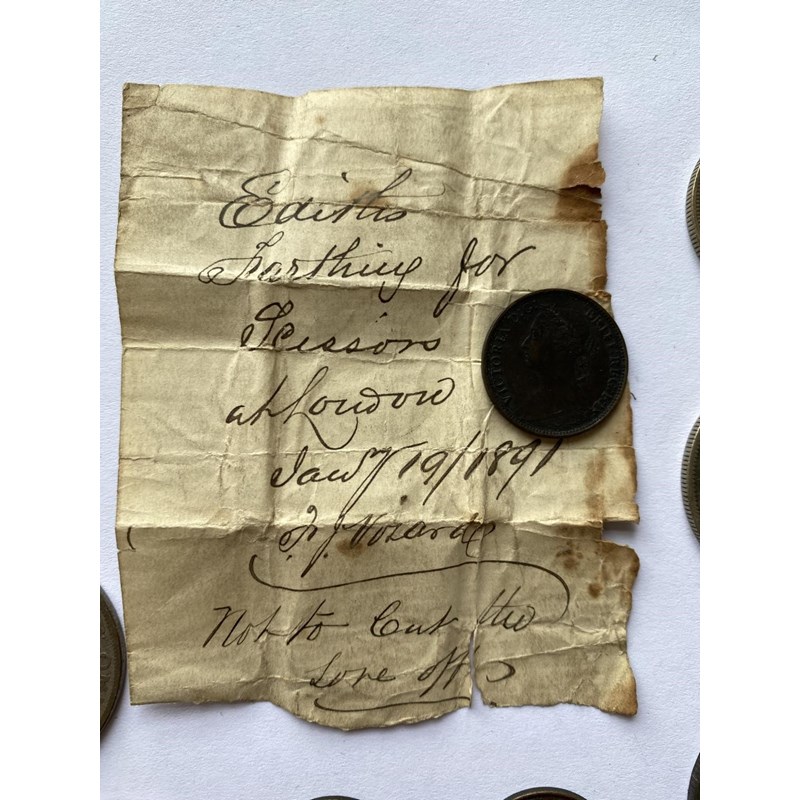 Ediths
Farthing for
Scissors
at London
Jany 19/1891
F. J. Vizard
Not to Cut the
Love off
VICTORIA
BRITT:REGINA